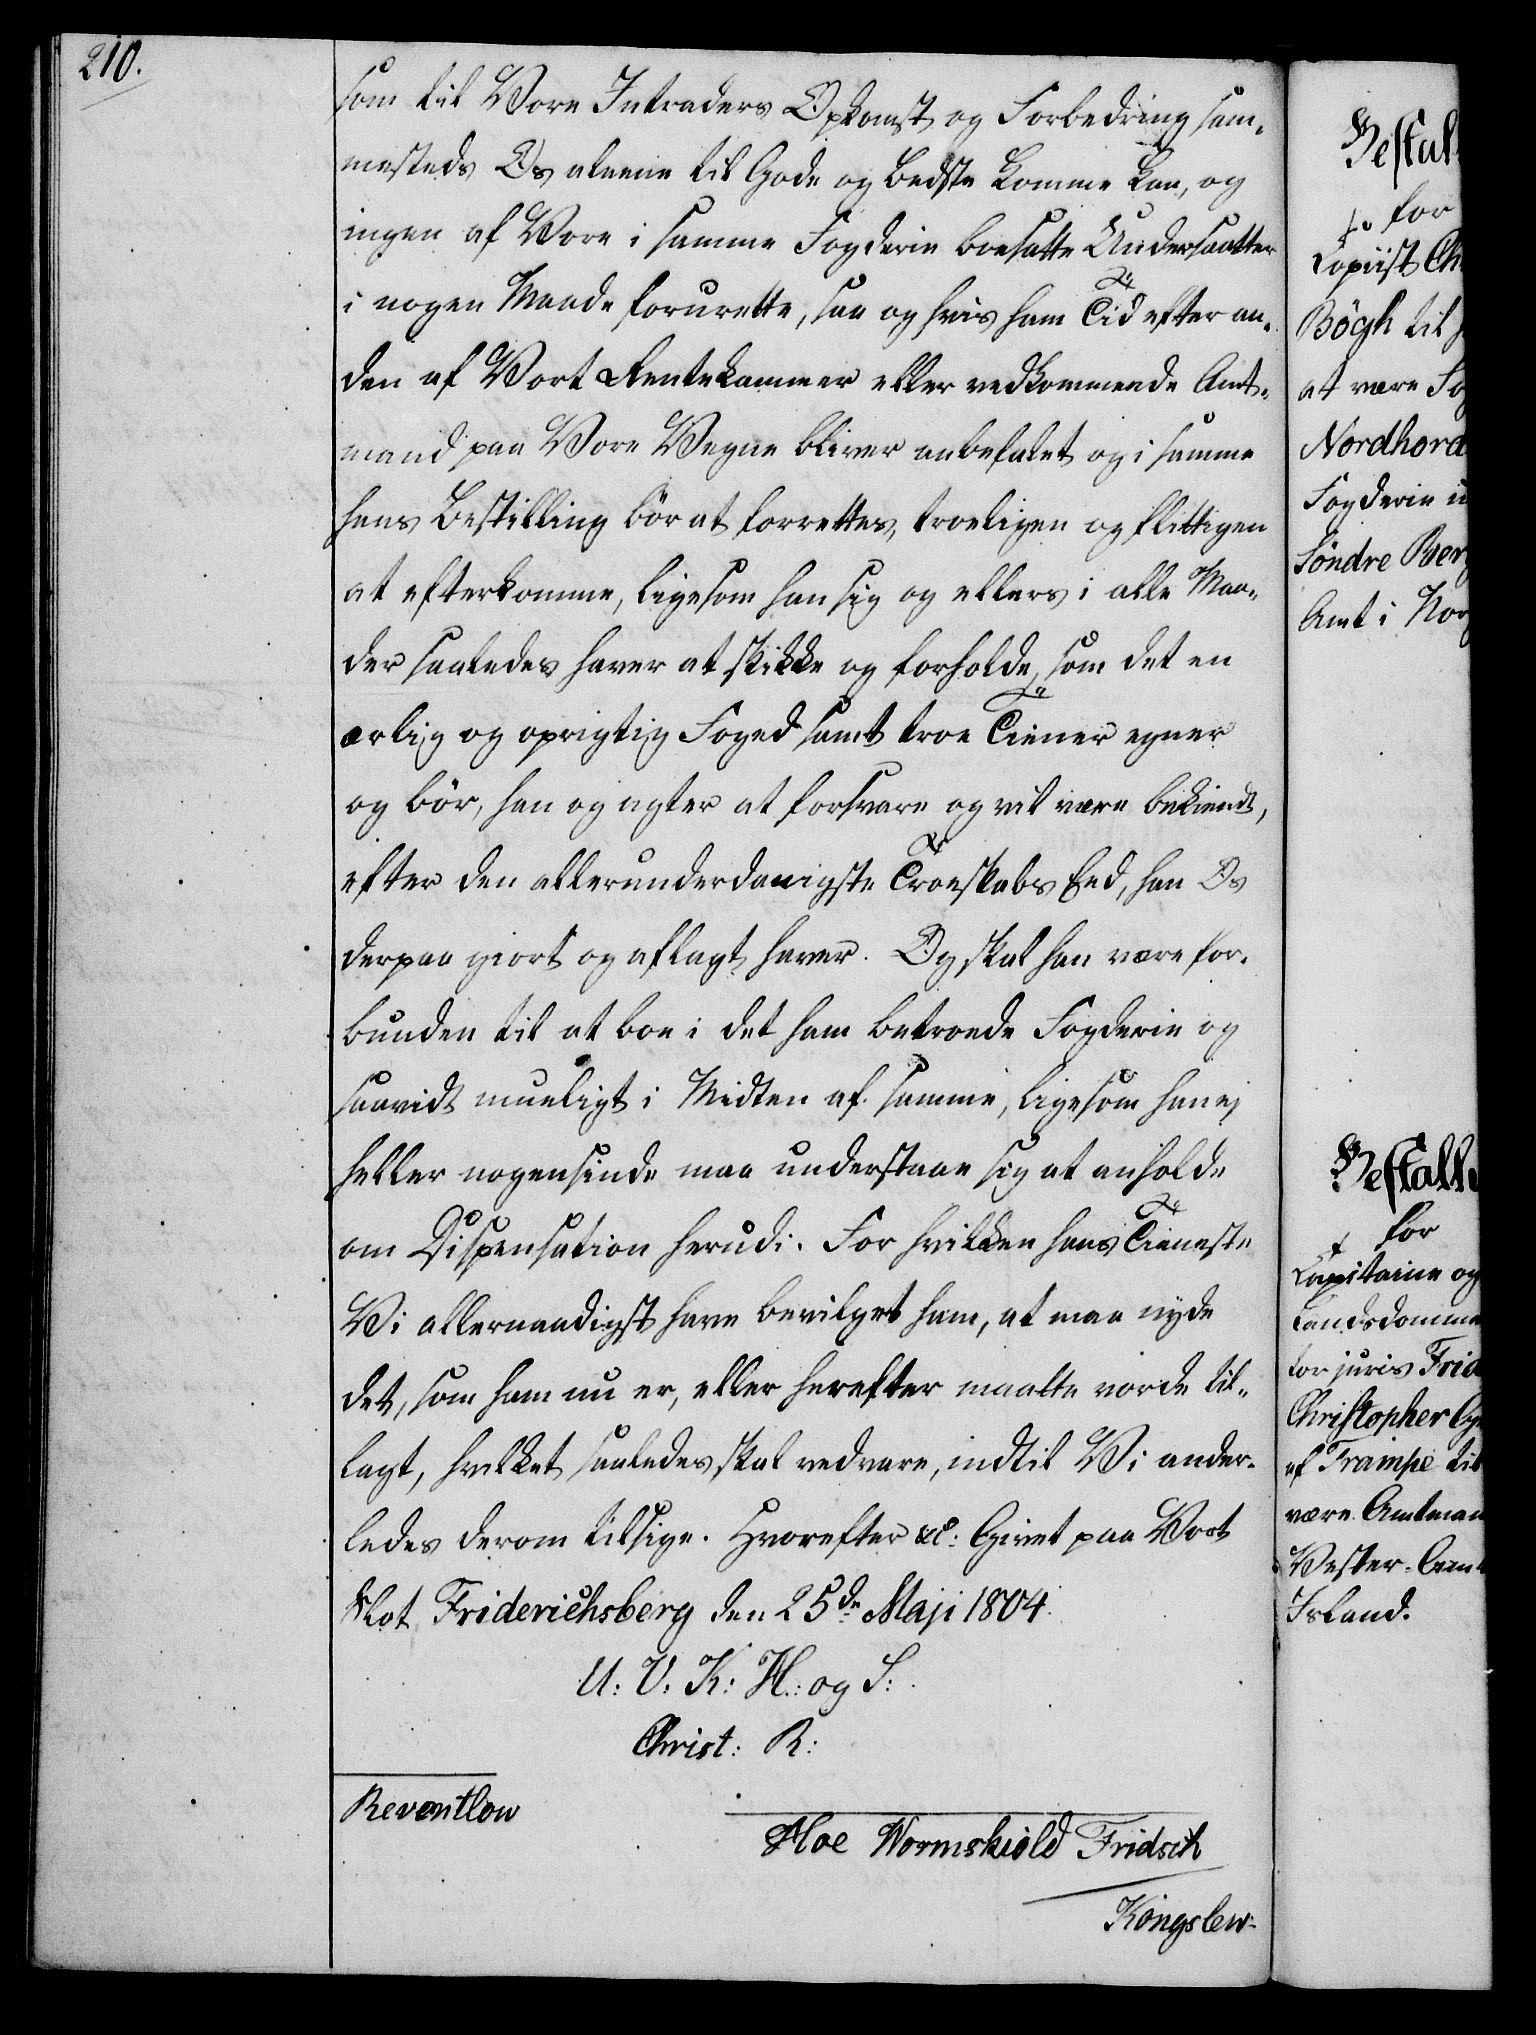 210.
som til Vore Intraders Opkomst og Forbedring sam¬
mesteds Os aleene til Gode og bedste komme kan, og
ingen af Vore i samme Fogderie boesatte Undersaatter
i nogen Maade forurette, saa og hvis ham Tid efter an¬
den af Vort Rentekammer eller vedkommende Amt¬
mand paa Vore Vegne bliver anbefalet og i samme
hans Bestilling bör at forrettes, troeligen og flittigen
at efterkomme, ligesom han sig og ellers i alle Maa¬
der saaledes haver at skikke og forholde, som det en
ærlig og oprigtig Foged samt troe Tiener egner
og bör, han og agter at forsvare og vil være bekiendt,
efter den allerunderdanigste Troeskabs Eed, han Os
derpaa giort og aflagt haver. Og skal han være for¬
bunden til at boe i det ham betroede Fogderie og
saavidt mueligt i Midten af samme, ligesom han ej
heller nogensinde maa understaae sig at anholde
om Dispensation herudi. For hvilken hans Tieneste
Vi allernaadigst have bevilget ham, at maa nyde
det, som ham nu er, eller herefter maatte vorde til¬
lagt, hvilket saaledes skal vedvare, indtil Vi ander¬
ledes derom tilsige. Hvorefter &c: Givet paa Vort
Slot Friderichsberg den 25de Maji 1804.
U: V: K: H: og S:
Christ: R:
Reventlow
Hoe Wormskiold Fridsch
Kongslew
Bestal
for
Copiist Ch
Bögh til
at være Fog
Nordhord
Fogderie u
Söndre Berg
Amt i Norg
Bestall
for
Capitaine og
Landsdomme
tor juris Frid
Christopher
af Trampe til
være Amtman
Vester-Amt
Island.